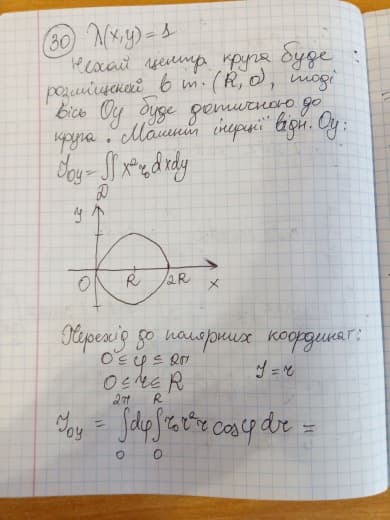 30 λ(x,y)=1
Нехай центр круга буде
розміщений в т. (R, 0), тоді
вісь Oy буде дотичною до
круга. Момент інерції відн. Oy:
I_oy = ∬ x² r₀ dxdy
D
y
O R 2R x
Перехід до полярних координат:
0 ≤ φ ≤ 2π
0 ≤ r ≤ R I = r
2π R
I_oy = ∫dφ ∫ r₀ r² r cosφ dr =
0 0